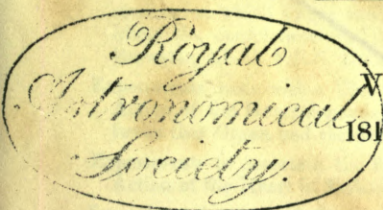 Royal
Astronomical
Society.
V
181